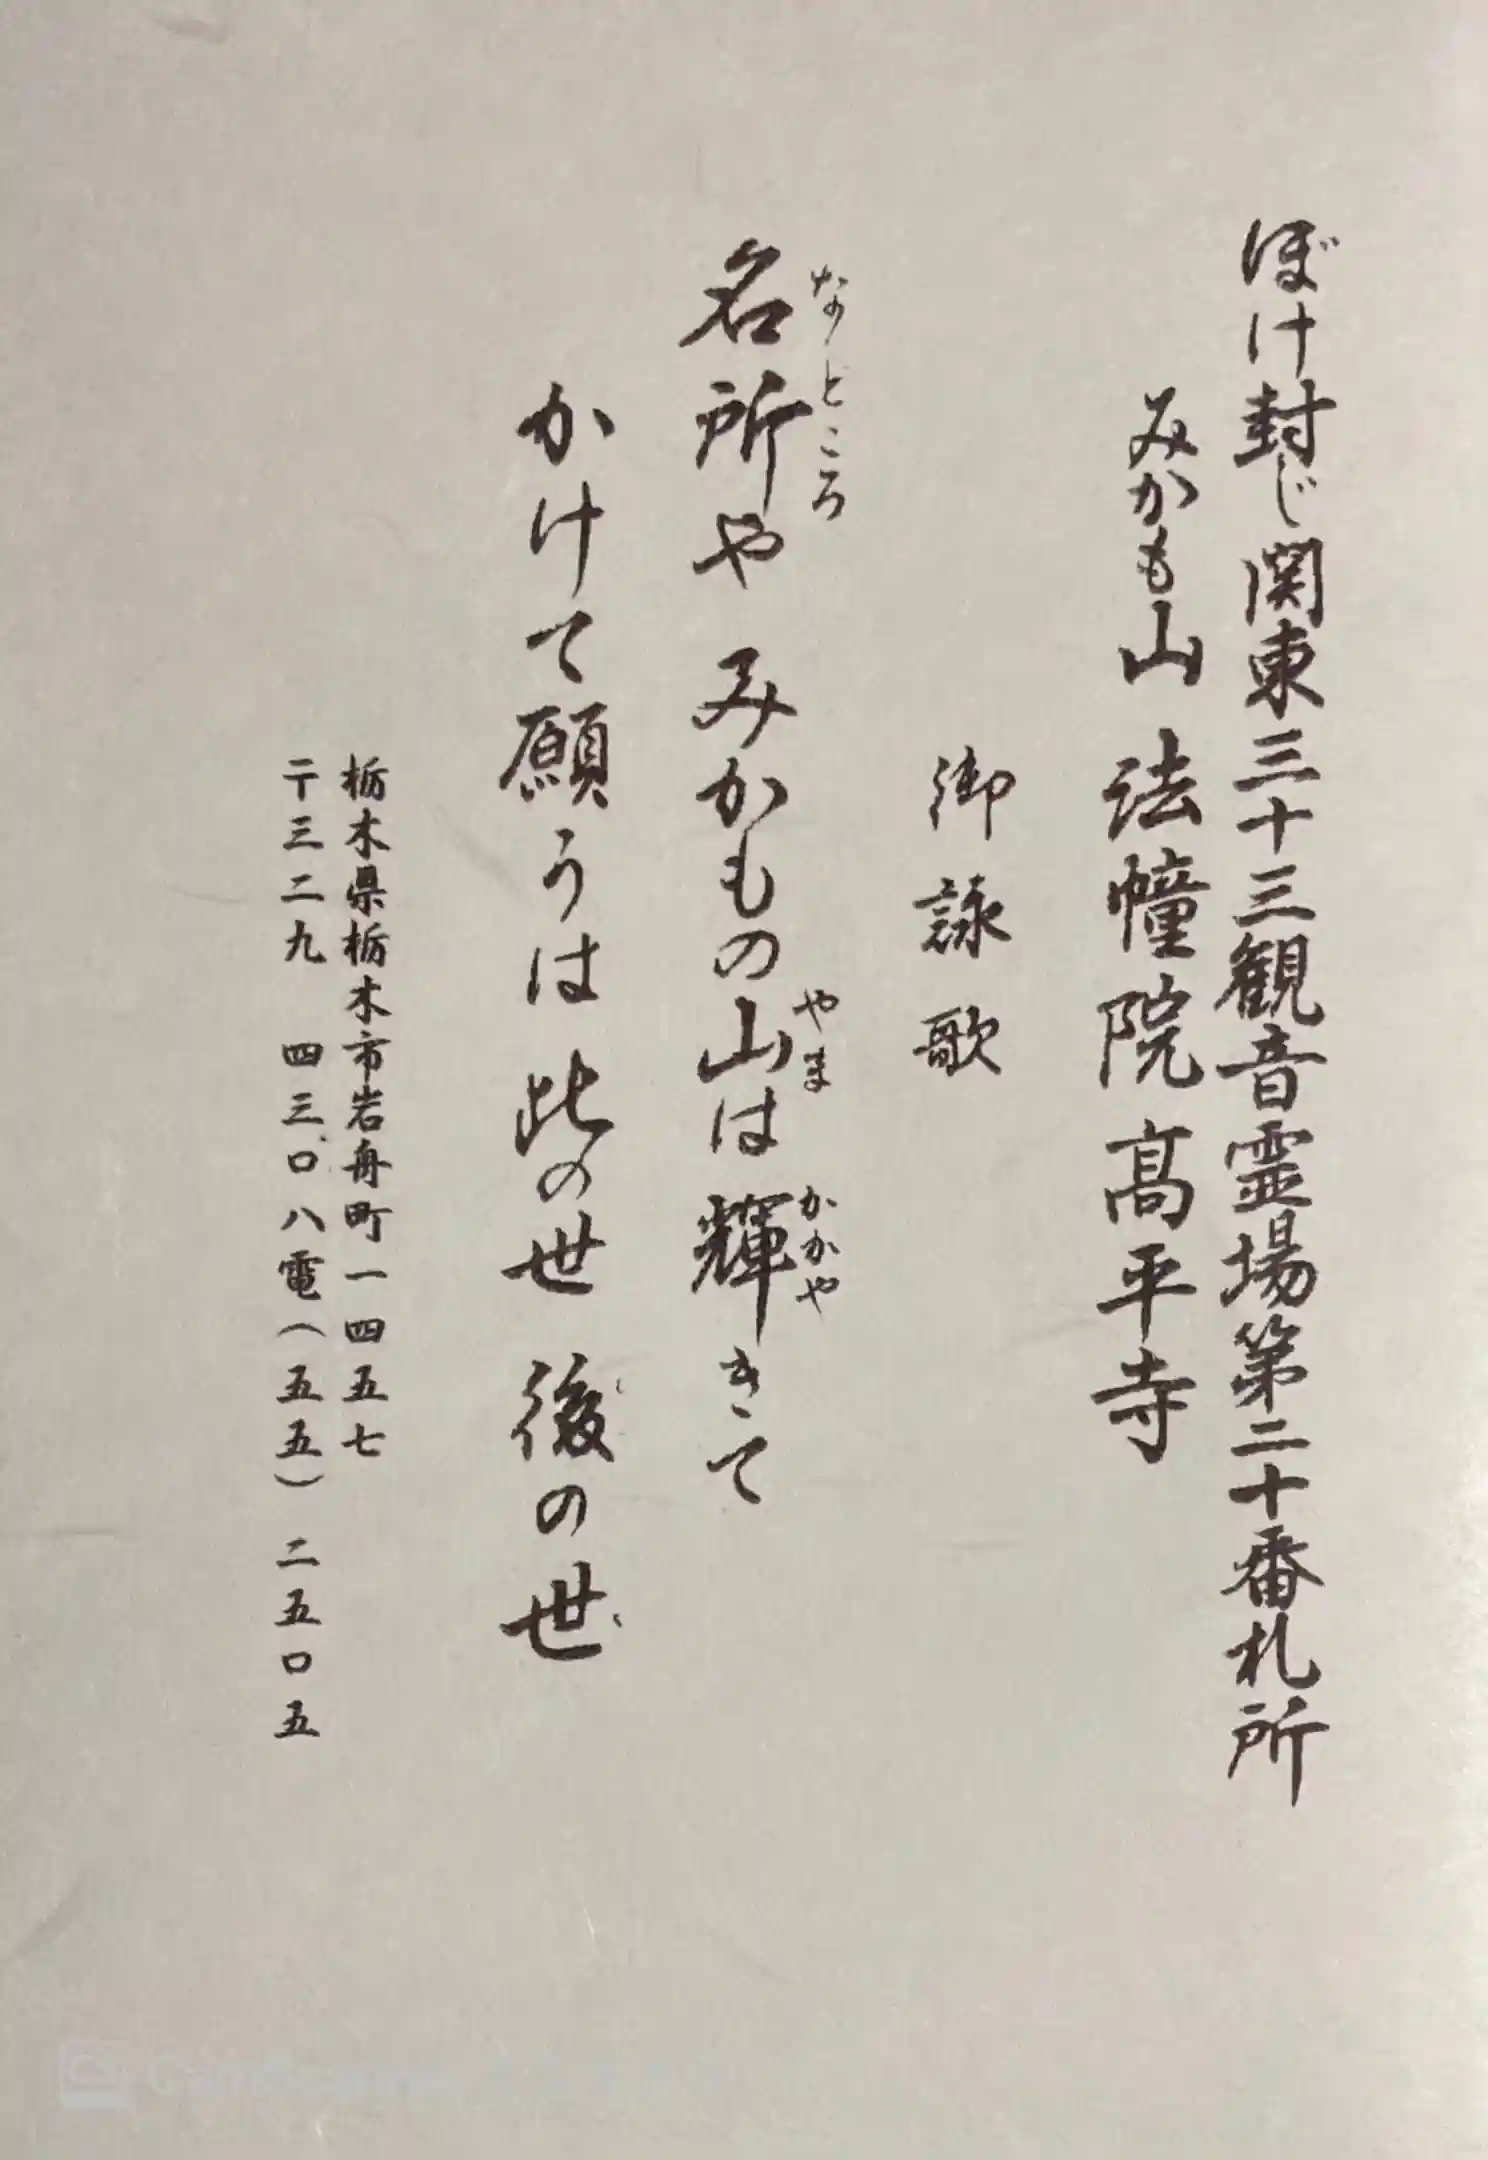 ぼけ封じ関東三十三観音霊場第二十番札所
みかも山 法幢院 髙平寺
御詠歌
名所や みかもの山は輝きて
なところ やま かがや
かけて願うは 此の世 後の世
栃木県栃木市岩舟町一四五七
〒三二九 四三〇八電(五五)二五〇五